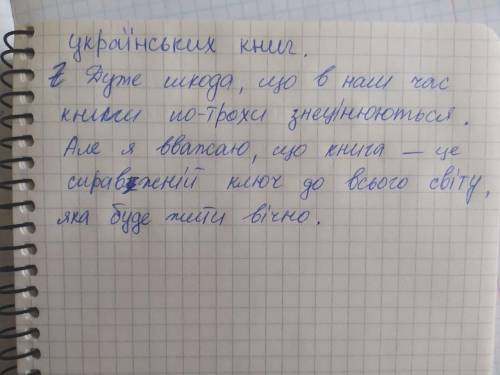 українських книг.
Дуже шкода, що в наш час
книги по-трохи знецінюються.
Але я вважаю, що книга – це
справжній ключ до всього світу,
яка буде жити вічно.